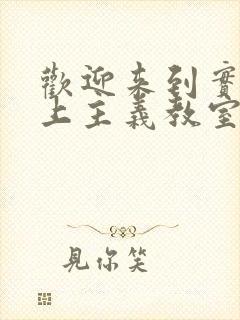 歡迎来到實
上主義教室
見你笑